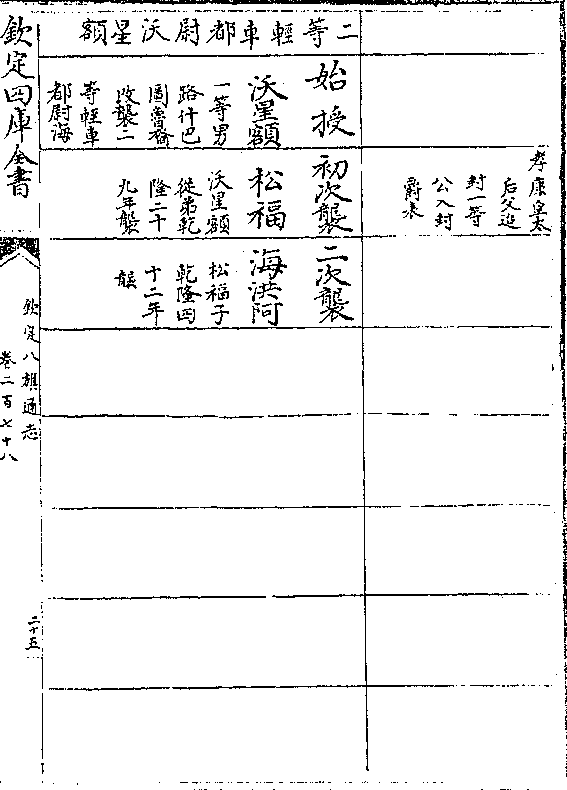 孝康皇太
后父追
封一等
公入封
爵表
二等輕車都尉沃星額
始授
沃星額
一等男
路什巴
圖魯裔
改襲二
等輕車
都尉海
初次襲
松福
沃星額
從弟乾
隆二十
九年襲
二次襲
海洪阿
松福子
乾隆四
十二年
襲
欽定四庫全書
欽定八旗通志
卷二百七十八
二十五